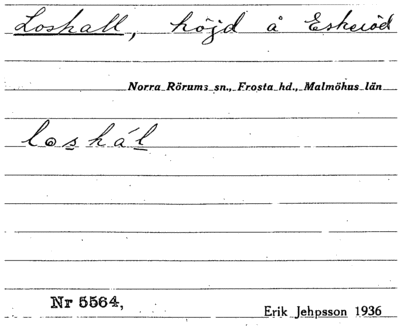 Loshall, höjd å Eskeröd
Norra Rörums sn., Frosta hd., Malmöhus län
loshál
Nr 5564,
Erik Jehpsson 1936